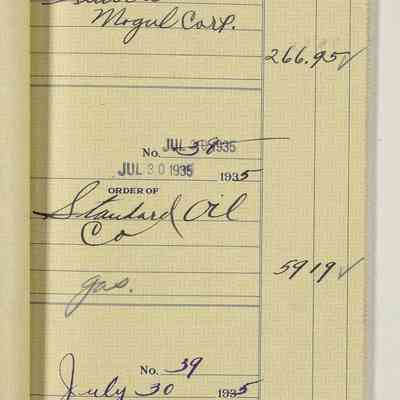 Mogul Corp.
266.95 ✓
JUL 30 1935
No. 38
JUL 30 1935 1935
ORDER OF
Standard Oil
Co
59 19 ✓
gas.
No. 39
July 30 1935